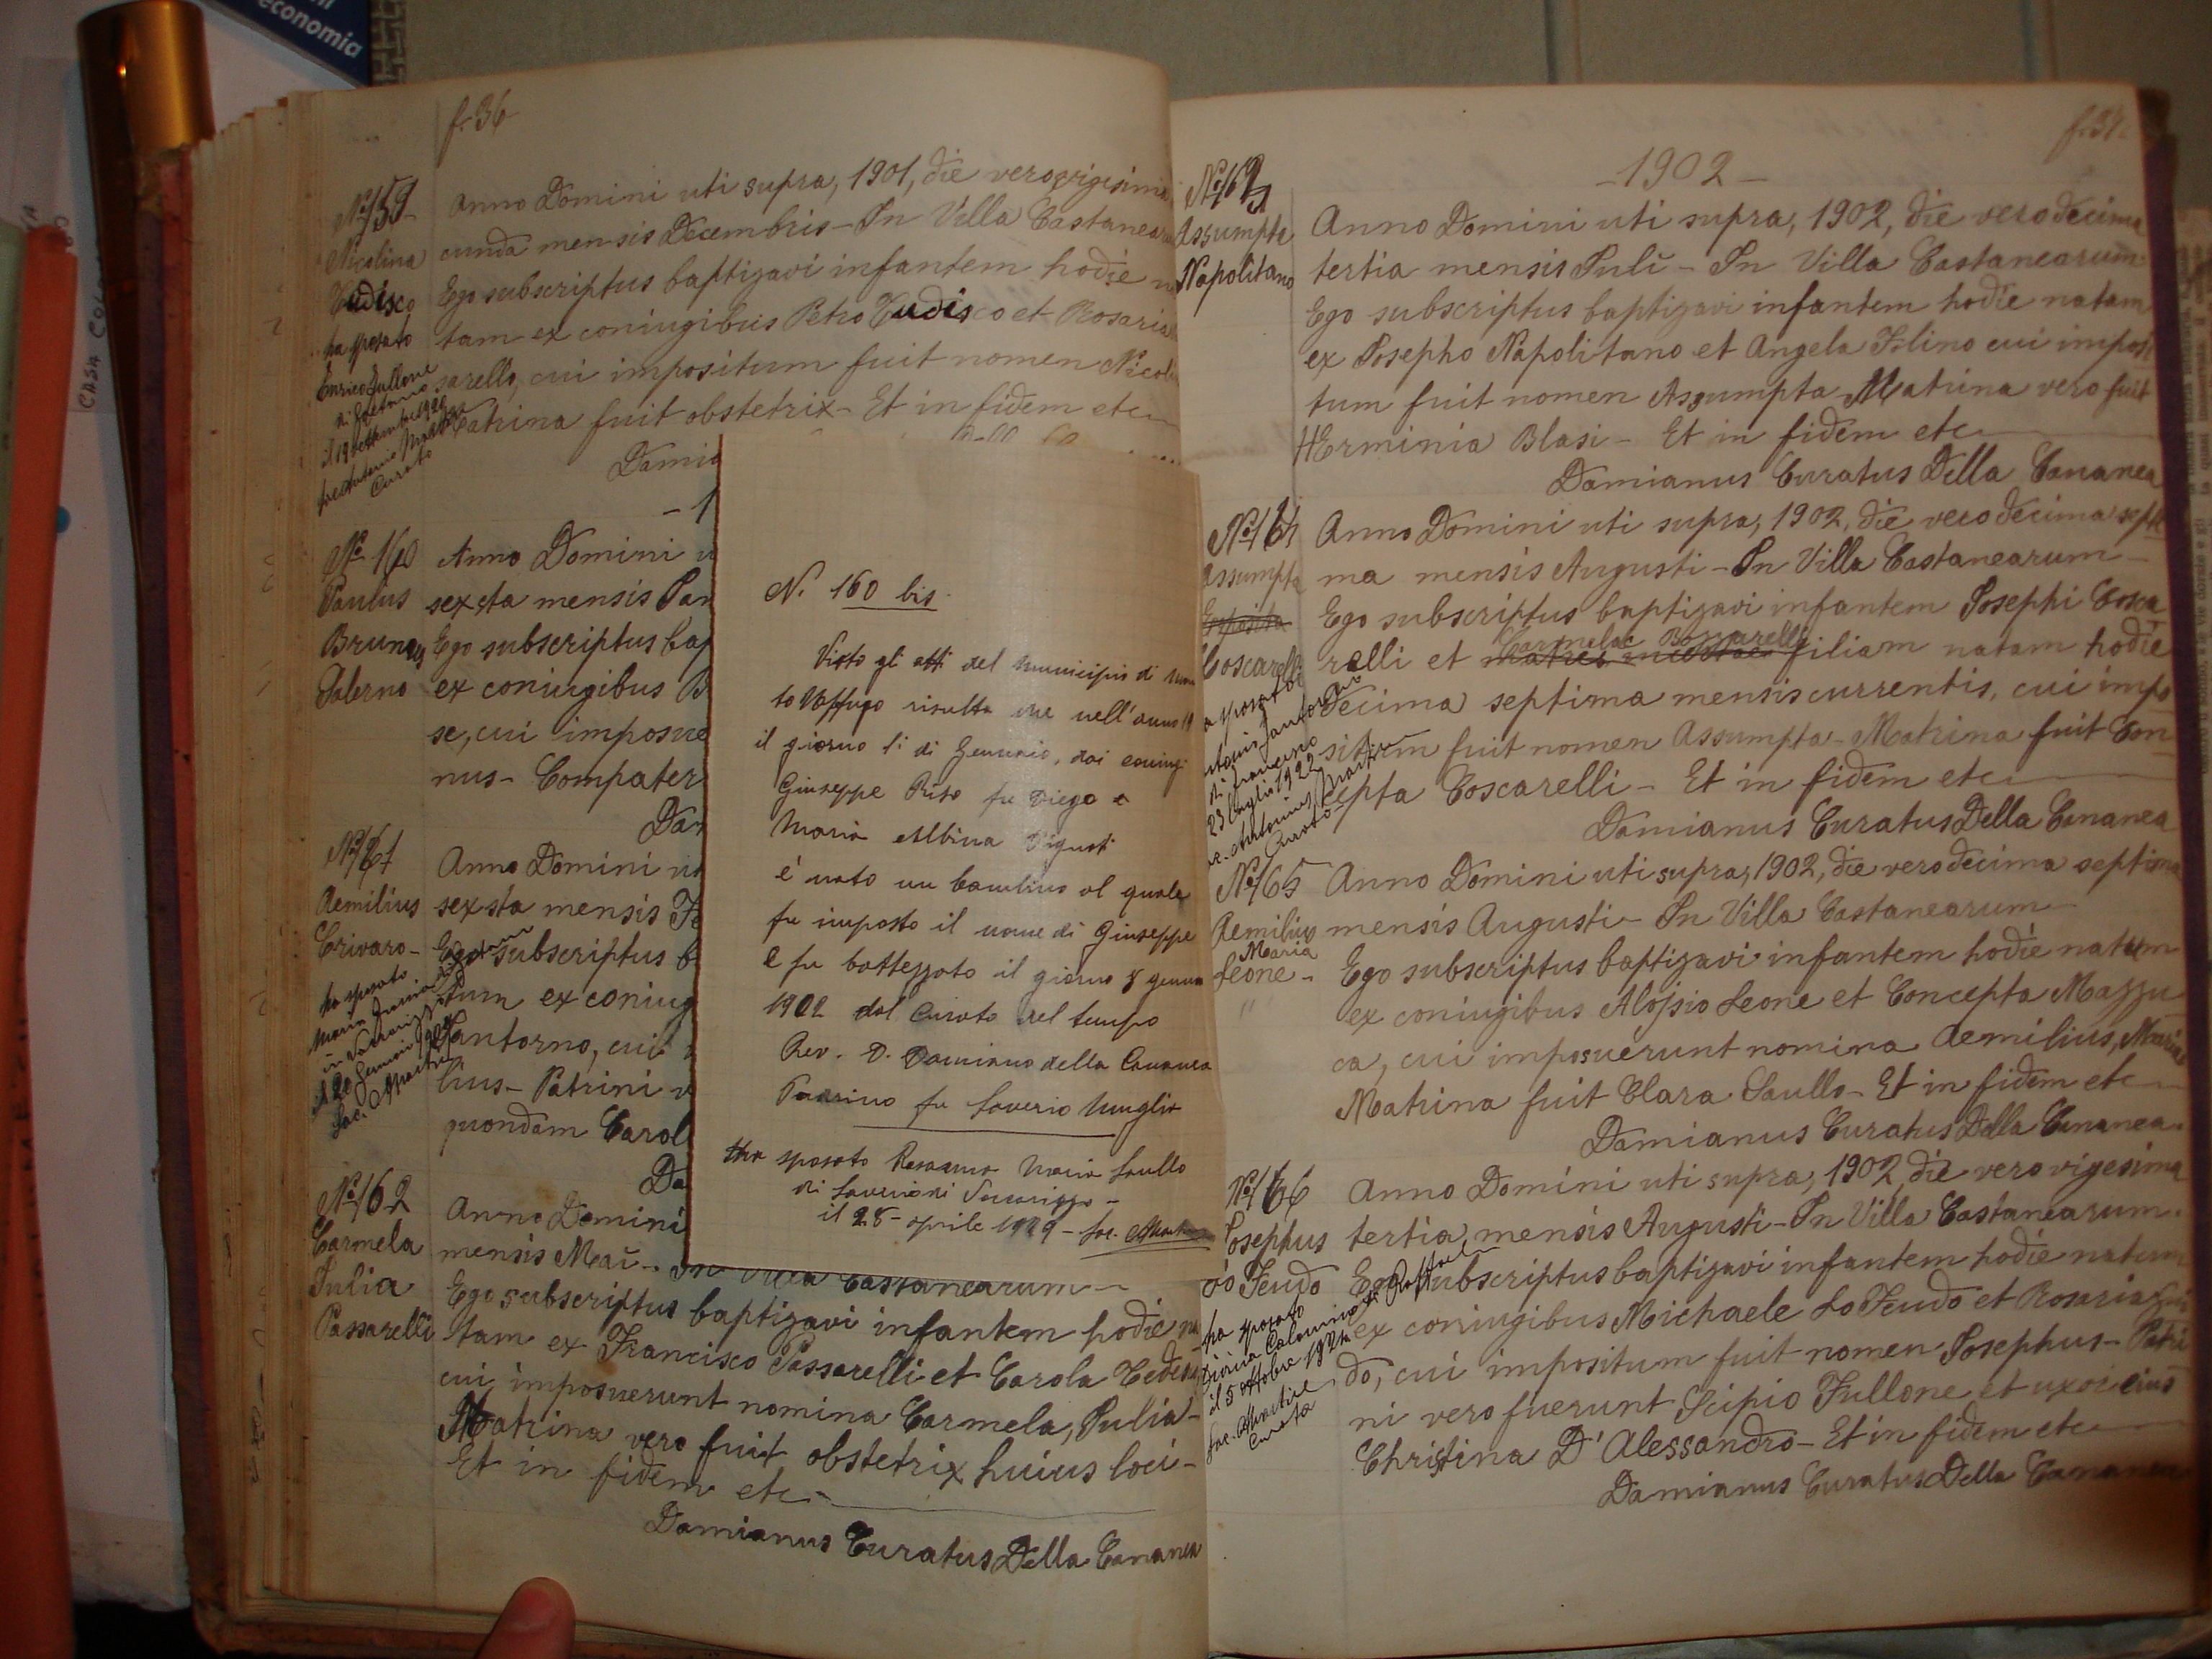 economia
f. 36
Nº 159
Nicolina
Tudisco
ha sposato
Enrico Fullone
di Gaetano
il 19 settembre 1920
Curato
Anno Domini uti supra, 1901, die vero vigesima
cunda mensis Decembris - In Villa Castanear
Ego subscriptus baptizavi infantem hodie
tam ex coniugibus Petro Tudisco et Rosaria
sarello, cui impositum fuit nomen Nicoli
Matrina fuit obstetrix - Et in fidem etc
Damia
Nº 160
Paulus
Brunus
Salerno
Anno Domini u
sexsta mensis Jan
Ego subscriptus bap
ex coniugibus B
se, cui imposue
nus - Compater
Da
Nº 161
Aemilius
Crivaro -
ha sposato
Anno Domini ut
sexsta mensis Fe
Ego subscriptus b
tum ex coniug
Santorno, cui
lius - Patrini v
quondam Carol
Da
Nº 162
Carmela
Julia
Passarelli
Anno Domini
mensis Maii - In Villa Castanearum -
Ego subscriptus baptizavi infantem hodie na
tam ex Francisco Passarelli et Carola
cui imposuerunt nomina Carmela, Julia -
Matrina vero fuit obstetrix huius loci -
Et in fidem etc
Damianus Curatus Della Cananea
N. 160 bis
Visto gli atti del Municipio di Mon
to Uffugo risulta che nell'anno 19
il giorno li di Gennaio, dai coniugi
Giuseppe Riso fu Diego e
Maria Albina
è nato un bambino al quale
fu imposto il nome di Giuseppe
e fu battezzato il giorno 8 genna
1902 dal Curato del tempo
Rev. D. Damiano della Cananea
Padrino fu Saverio Puglia
ha sposato Rosanna Maria Saullo
di Saverio di
il 28 - aprile 1929 - Sac.
f. 37
- 1902 -
Nº 163
Assumpta
Napolitano
Anno Domini uti supra, 1902, die vero decima
tertia mensis Julii - In Villa Castanearum
Ego subscriptus baptizavi infantem hodie natam
ex Josepho Napolitano et Angela Filino cui imposi
tum fuit nomen Assumpta Matrina vero fuit
HErminia Blasi - Et in fidem etc
Damianus Curatus Della Cananea
Nº 164
Assumpta
Esposito
Coscarelli
ha sposato
23 luglio 1922
Curato
Anno Domini uti supra, 1902, die vero decima septi
ma mensis Augusti - In Villa Castanearum -
Ego subscriptus baptizavi infantem Josephi Cosca
Carmela
relli et filiam natam hodie
decima septima mensis currentis, cui impo
situm fuit nomen Assumpta - Matrina fuit Con
cepta Coscarelli - Et in fidem etc
Damianus Curatus Della Cananea
Nº 165
Aemilius
Maria
Leone -
Anno Domini uti supra, 1902, die vero decima septima
mensis Augusti - In Villa Castanearum -
Ego subscriptus baptizavi infantem hodie natum
ex coniugibus Alojsio Leone et Concepta Mazzu
ca, cui imposuerunt nomina Aemilius, Maria
Matrina fuit Clara Saullo - Et in fidem etc
Damianus Curatus Della Cananea
Nº 166
Josephus
Lo Feudo
ha sposato
il 5 ottobre
Curato
Anno Domini uti supra, 1902, die vero vigesima
tertia mensis Augusti - In Villa Castanearum.
Ego subscriptus baptizavi infantem hodie natum
ex coniugibus Michaele Lo Feudo et Rosaria
do, cui impositum fuit nomen Josephus - Patri
ni vero fuerunt Scipio Fullone et uxor eius
Christina D'Alessandro - Et in fidem etc
Damianus Curatus Della Cananea